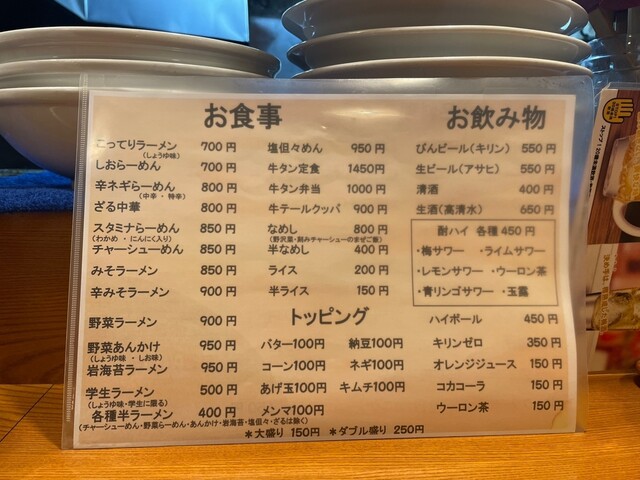 お食事
こってりラーメン 700円
(しょうゆ味)
しおらーめん 700円
辛ネギらーめん 800円
(中辛・特辛)
ざる中華 800円
スタミナらーめん 850円
(わかめ・にんにく入り)
チャーシューめん 850円
みそラーメン 850円
辛みそラーメン 900円
野菜ラーメン 900円
野菜あんかけ 950円
(しょうゆ味・しお味)
岩海苔ラーメン 950円
学生ラーメン 500円
(しょうゆ味・学生に限る)
各種半ラーメン 400円
(チャーシューめん・野菜らーめん・あんかけ・岩海苔・塩但々・ざるは除く)
塩但々めん 950円
牛タン定食 1450円
牛タン弁当 1000円
牛テールクッパ 900円
なめし 800円
(野沢菜・刻みチャーシューのまぜご飯)
半なめし 400円
ライス 200円
半ライス 150円
トッピング
バター100円 納豆100円
コーン100円 ネギ100円
あげ玉100円 キムチ100円
メンマ100円
*大盛り 150円 *ダブル盛り 250円
お飲み物
びんビール(キリン) 550円
生ビール(アサヒ) 550円
清酒 400円
生酒(高清水) 650円
酎ハイ 各種450円
・梅サワー ・ライムサワー
・レモンサワー ・ウーロン茶
・青リンゴサワー ・玉露
ハイボール 450円
キリンゼロ 350円
オレンジジュース 150円
コカコーラ 150円
ウーロン茶 150円